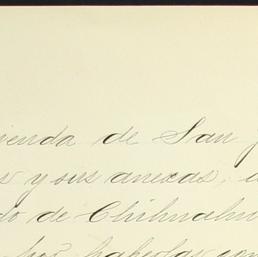 ienda de San
s y sus anexas,
do de Chihuahu
por haberlas con